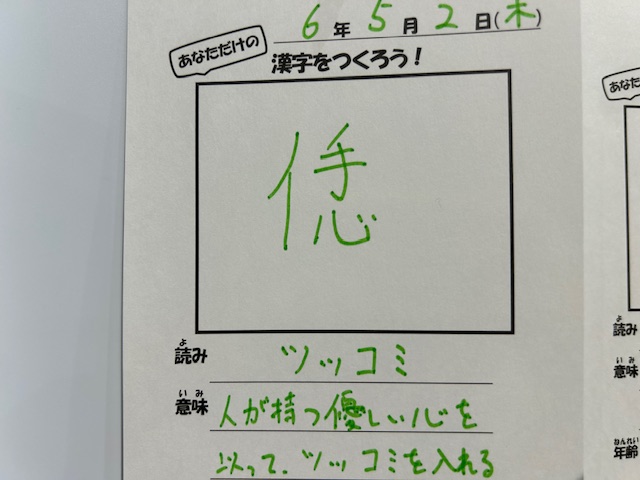 6年5月2日(木)
あなただけの
漢字をつくろう!
読み ツッコミ
意味 人が持つ優しい心を
以って、ツッコミを入れる
あなた
読み
意味
年齢